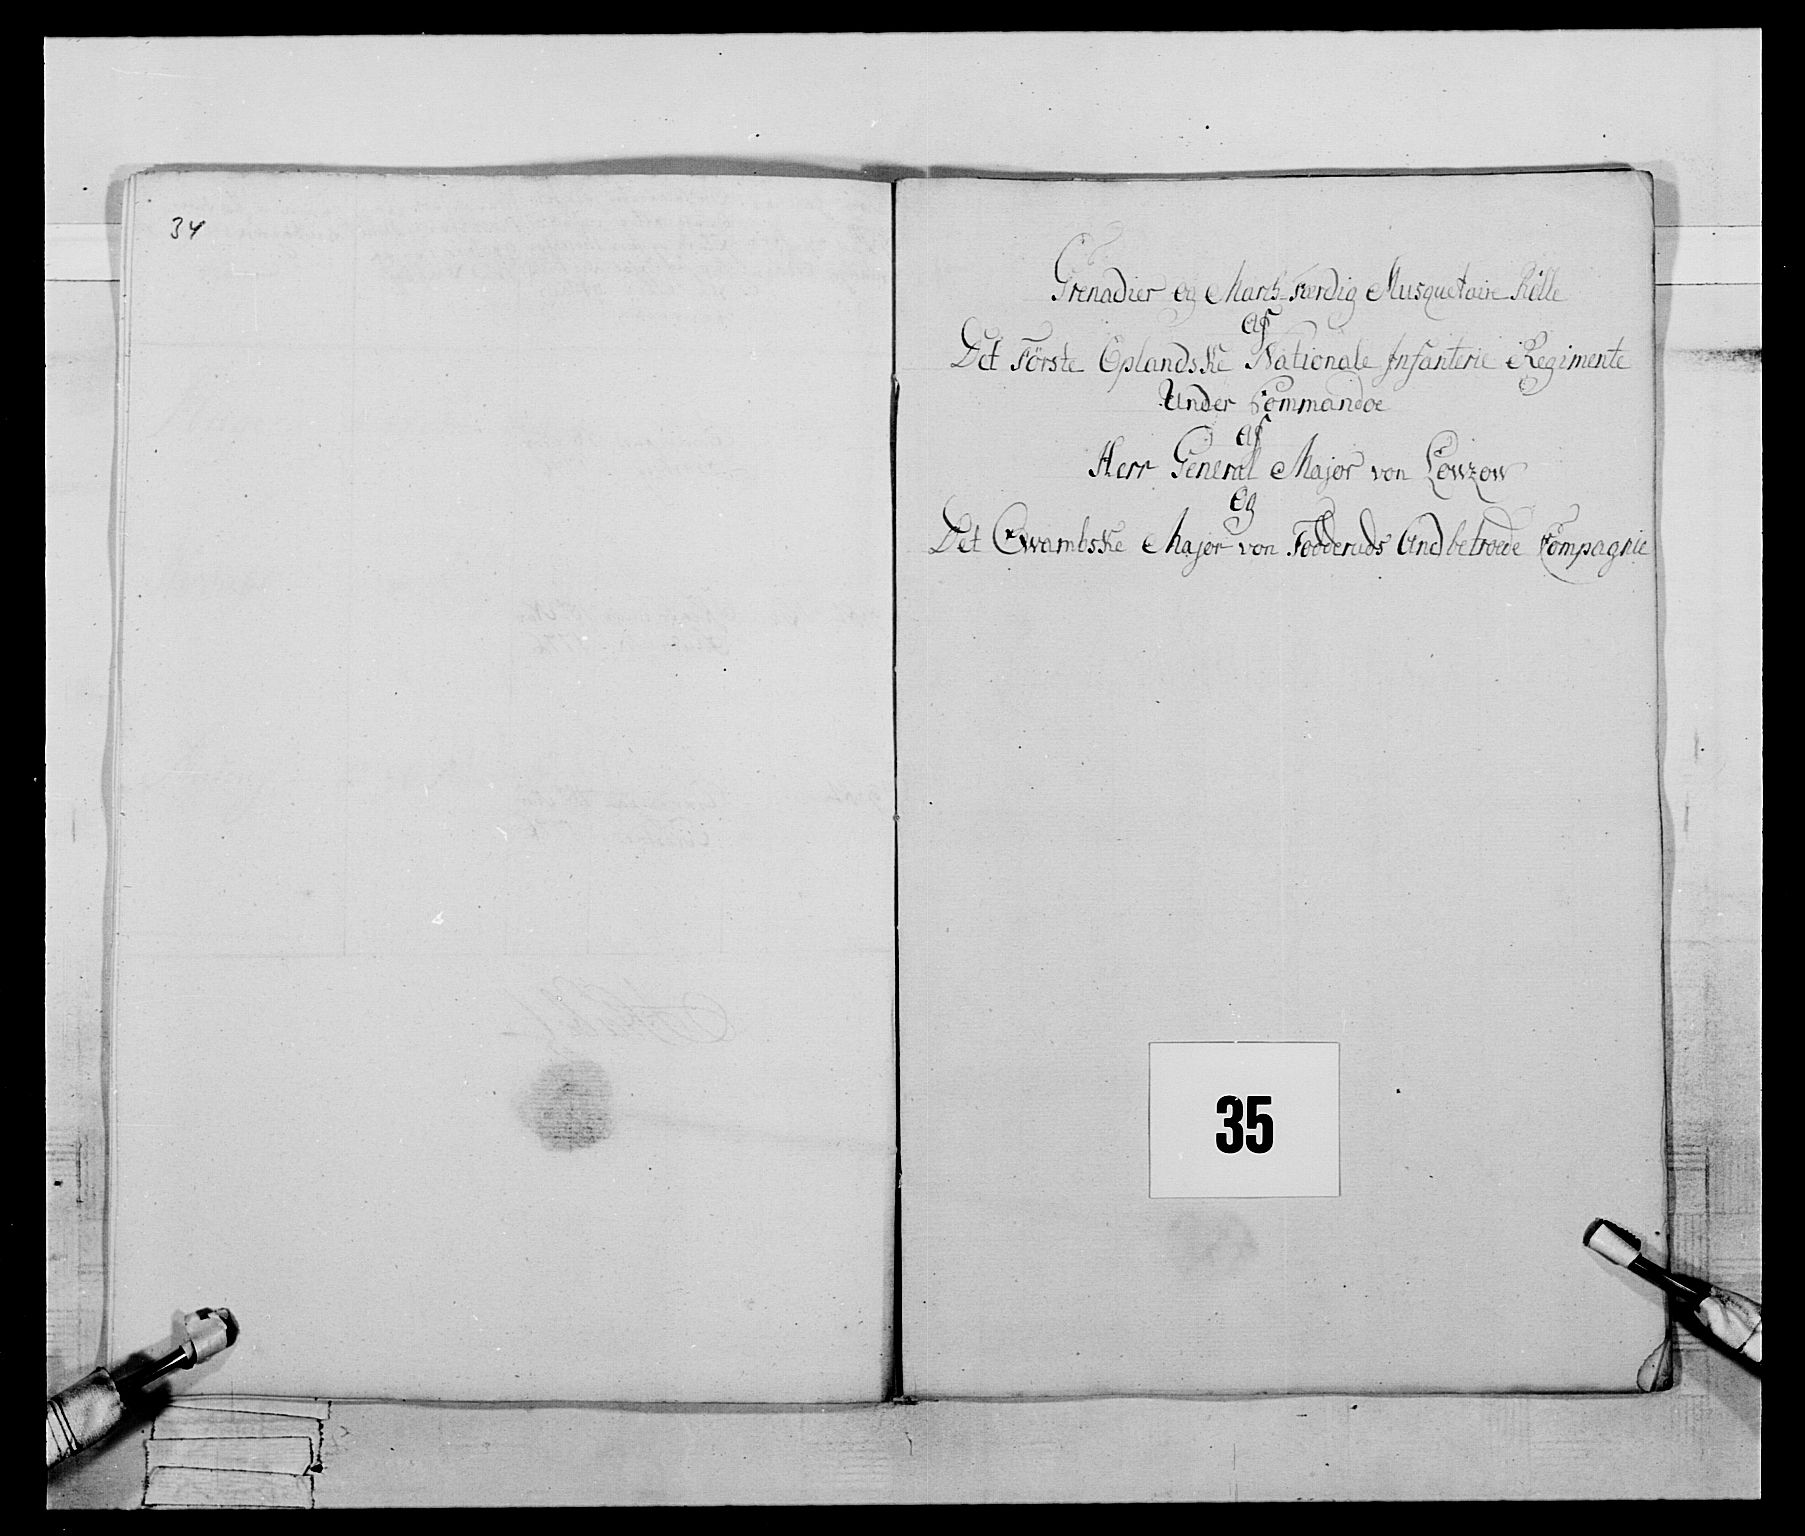 34
Grenadier og March-Færdig Musquetaire Rölle
af
Det Förste Oplandske Nationale Infanterie Regimente
Under Commandoe
af
Herr General Major von Lowzow
og
Det Qvambske Major von Fodderuds Andbetroede Compagnie
35